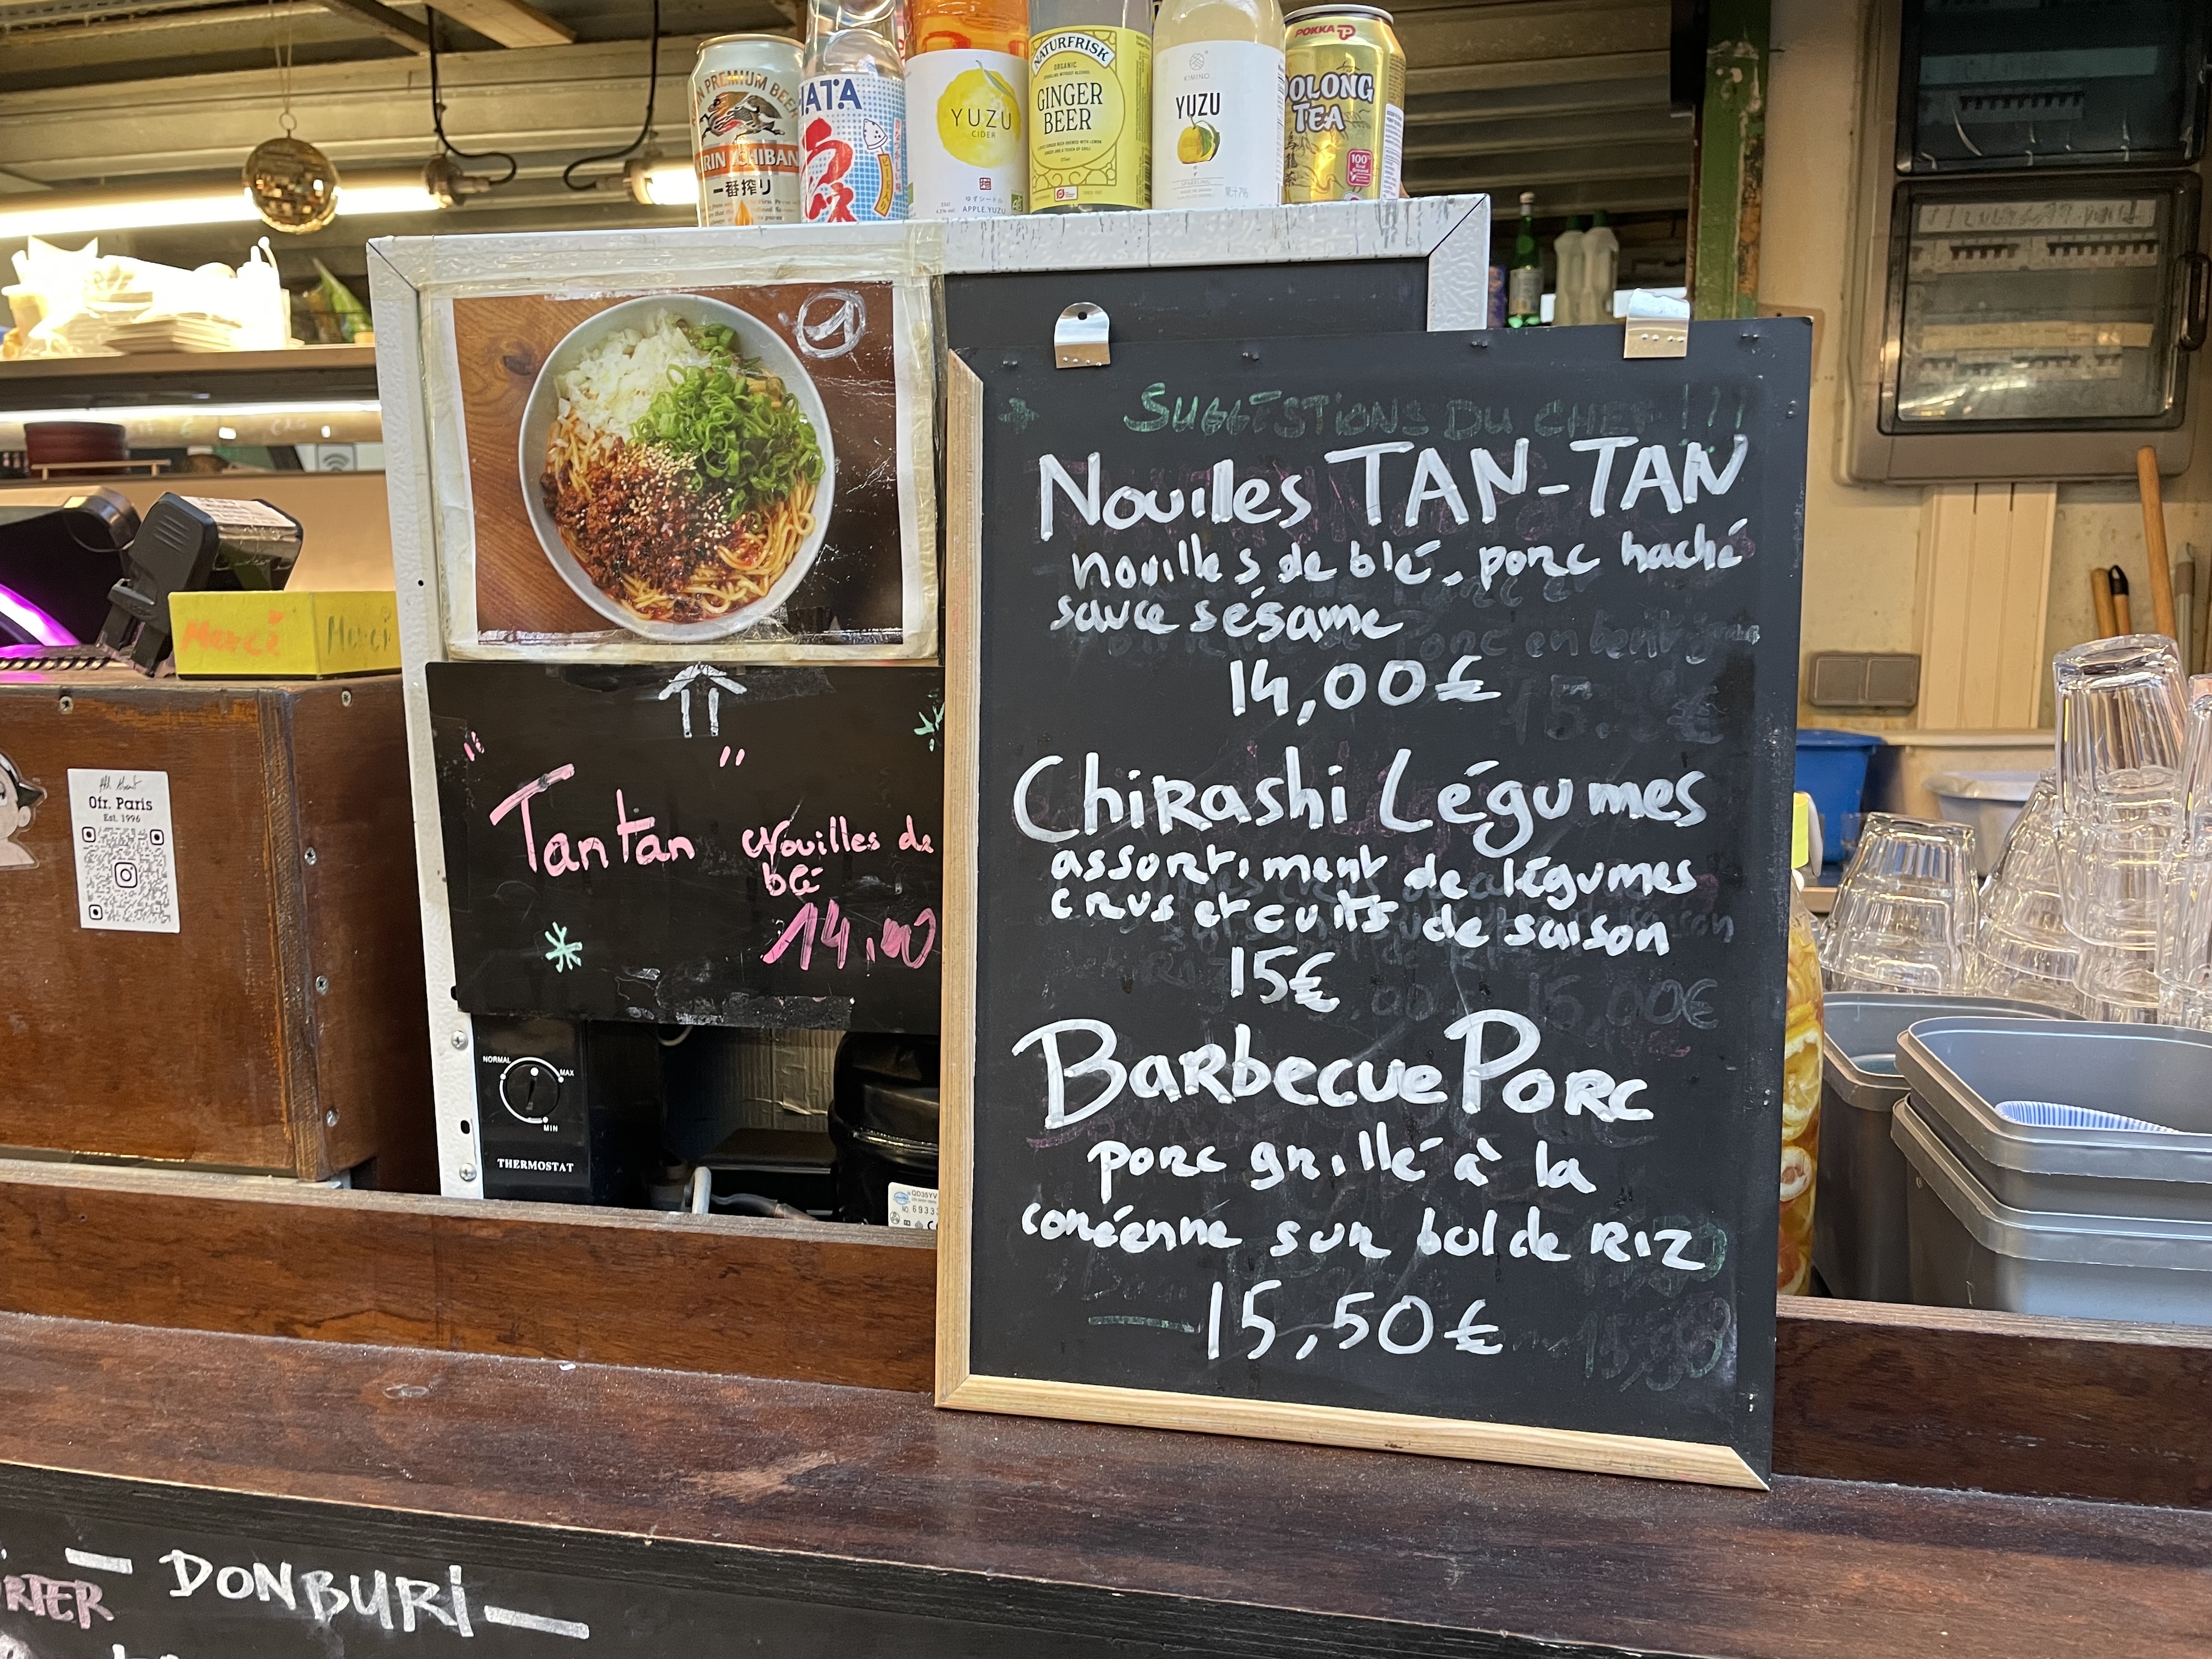 KIRIN ICHIBAN
一番搾り
HATA
YUZU
CIDER
ゆずシードル
APPLE, YUZU
NATURFRISK
ORGANIC
GINGER
BEER
KIMINO
YUZU
SPARKLING
果汁7%
POKKA
OOLONG
TEA
100%
SUGGESTIONS DU CHEF !!!
Nouilles TAN-TAN
nouilles de blé, porc haché
sauce sésame
14,00€
Chirashi Légumes
assortiment de légumes
crus et cuits de saison
15€
Barbecue Porc
porc grillé à la
coréenne sur bol de RIZ
15,50€
"Tantan" Nouilles de
blé
14.00
Merci
Merci
0fr. Paris
Est. 1996
NORMAL
MAX
MIN
THERMOSTAT
— DONBURI —